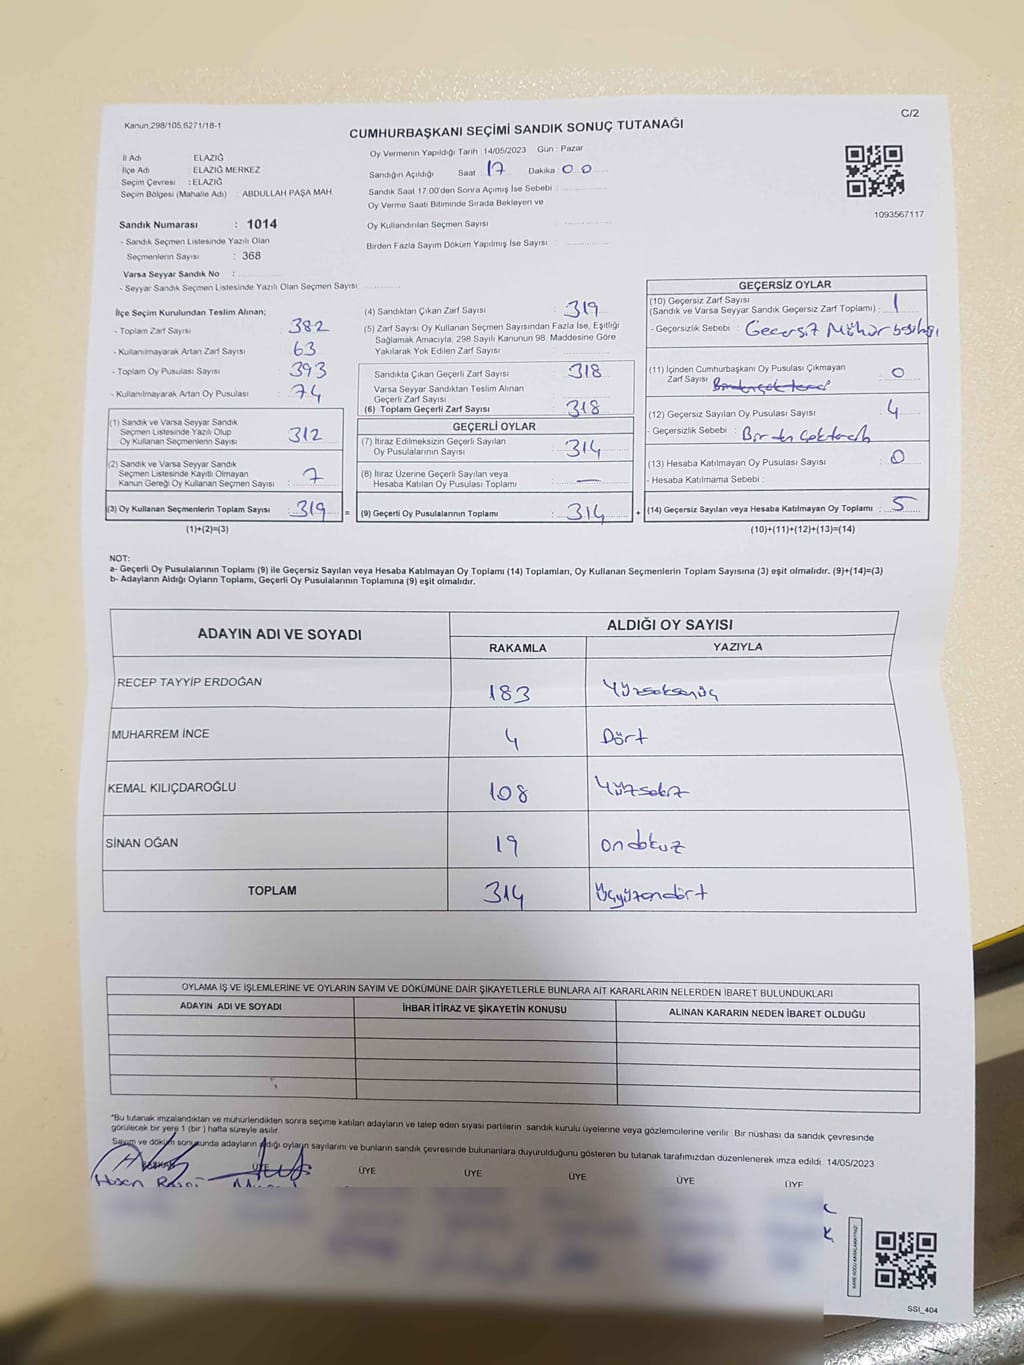 Kanun,298/105,6271/18-1
C/2
CUMHURBAŞKANI SEÇİMİ SANDIK SONUÇ TUTANAĞI
İl Adı ELAZIĞ
İlçe Adı : ELAZIĞ MERKEZ
Seçim Çevresi : ELAZIĞ
Seçim Bölgesi (Mahalle Adı) : ABDULLAH PAŞA MAH.
Sandık Numarası : 1014
- Sandık Seçmen Listesinde Yazılı Olan
Seçmenlerin Sayısı : 368
Varsa Seyyar Sandık No :
- Seyyar Sandık Seçmen Listesinde Yazılı Olan Seçmen Sayısı
Oy Vermenin Yapıldığı Tarih : 14/05/2023 Gün : Pazar
Sandığın Açıldığı Saat : 17 Dakika : 00
Sandık Saat 17:00'den Sonra Açılmış İse Sebebi :
Oy Verme Saati Bitiminde Sırada Bekleyen ve
Oy Kullandırılan Seçmen Sayısı
Birden Fazla Sayım Döküm Yapılmış İse Sayısı
1093567117
İlçe Seçim Kurulundan Teslim Alınan;
- Toplam Zarf Sayısı : 382
- Kullanılmayarak Artan Zarf Sayısı : 63
- Toplam Oy Pusulası Sayısı : 393
- Kullanılmayarak Artan Oy Pusulası : 74
(1) Sandık ve Varsa Seyyar Sandık
Seçmen Listesinde Yazılı Olup
Oy Kullanan Seçmenlerin Sayısı : 312
(2) Sandık ve Varsa Seyyar Sandık
Seçmen Listesinde Kayıtlı Olmayan
Kanun Gereği Oy Kullanan Seçmen Sayısı : 7
(3) Oy Kullanan Seçmenlerin Toplam Sayısı : 319 =
(1)+(2)=(3)
(4) Sandıktan Çıkan Zarf Sayısı : 319
(5) Zarf Sayısı Oy Kullanan Seçmen Sayısından Fazla İse, Eşitliği
Sağlamak Amacıyla, 298 Sayılı Kanunun 98. Maddesine Göre
Yakılarak Yok Edilen Zarf Sayısı :
Sandıkta Çıkan Geçerli Zarf Sayısı : 318
Varsa Seyyar Sandıktan Teslim Alınan
Geçerli Zarf Sayısı
(6) Toplam Geçerli Zarf Sayısı : 318
GEÇERLİ OYLAR
(7) İtiraz Edilmeksizin Geçerli Sayılan
Oy Pusulalarının Sayısı : 314
(8) İtiraz Üzerine Geçerli Sayılan veya
Hesaba Katılan Oy Pusulası Toplamı : —
(9) Geçerli Oy Pusulalarının Toplamı : 314 +
GEÇERSİZ OYLAR
(10) Geçersiz Zarf Sayısı
(Sandık ve Varsa Seyyar Sandık Geçersiz Zarf Toplamı) : 1
- Geçersizlik Sebebi : Geçersiz Mühür
(11) İçinden Cumhurbaşkanı Oy Pusulası Çıkmayan
Zarf Sayısı : 0
(12) Geçersiz Sayılan Oy Pusulası Sayısı : 4
- Geçersizlik Sebebi : Birden çok tercih
(13) Hesaba Katılmayan Oy Pusulası Sayısı : 0
- Hesaba Katılmama Sebebi :
(14) Geçersiz Sayılan veya Hesaba Katılmayan Oy Toplamı : 5
(10)+(11)+(12)+(13)=(14)
NOT:
a- Geçerli Oy Pusulalarının Toplamı (9) ile Geçersiz Sayılan veya Hesaba Katılmayan Oy Toplamı (14) Toplamları, Oy Kullanan Seçmenlerin Toplam Sayısına (3) eşit olmalıdır. (9)+(14)=(3)
b- Adayların Aldığı Oyların Toplamı, Geçerli Oy Pusulalarının Toplamına (9) eşit olmalıdır.
ADAYIN ADI VE SOYADI ALDIĞI OY SAYISI
RAKAMLA YAZIYLA
RECEP TAYYİP ERDOĞAN 183 Yüzseksenüç
MUHARREM İNCE 4 Dört
KEMAL KILIÇDAROĞLU 108 Yüzsekiz
SİNAN OĞAN 19 ondokuz
TOPLAM 314 Üçyüzondört
OYLAMA İŞ VE İŞLEMLERİNE VE OYLARIN SAYIM VE DÖKÜMÜNE DAİR ŞİKAYETLERLE BUNLARA AİT KARARLARIN NELERDEN İBARET BULUNDUKLARI
ADAYIN ADI VE SOYADI İHBAR İTİRAZ VE ŞİKAYETİN KONUSU ALINAN KARARIN NEDEN İBARET OLDUĞU
"Bu tutanak imzalandıktan ve mühürlendikten sonra seçime katılan adayların ve talep eden siyasi partilerin sandık kurulu üyelerine veya gözlemcilerine verilir. Bir nüshası da sandık çevresinde
görülecek bir yere 1 (bir) hafta süreyle asılır.
Sayım ve döküm sonucunda adayların aldığı oyların sayılarını ve bunların sandık çevresinde bulunanlara duyurulduğunu gösteren bu tutanak tarafımızdan düzenlenerek imza edildi. 14/05/2023
BAŞKAN ÜYE ÜYE ÜYE ÜYE ÜYE ÜYE
SSI_404